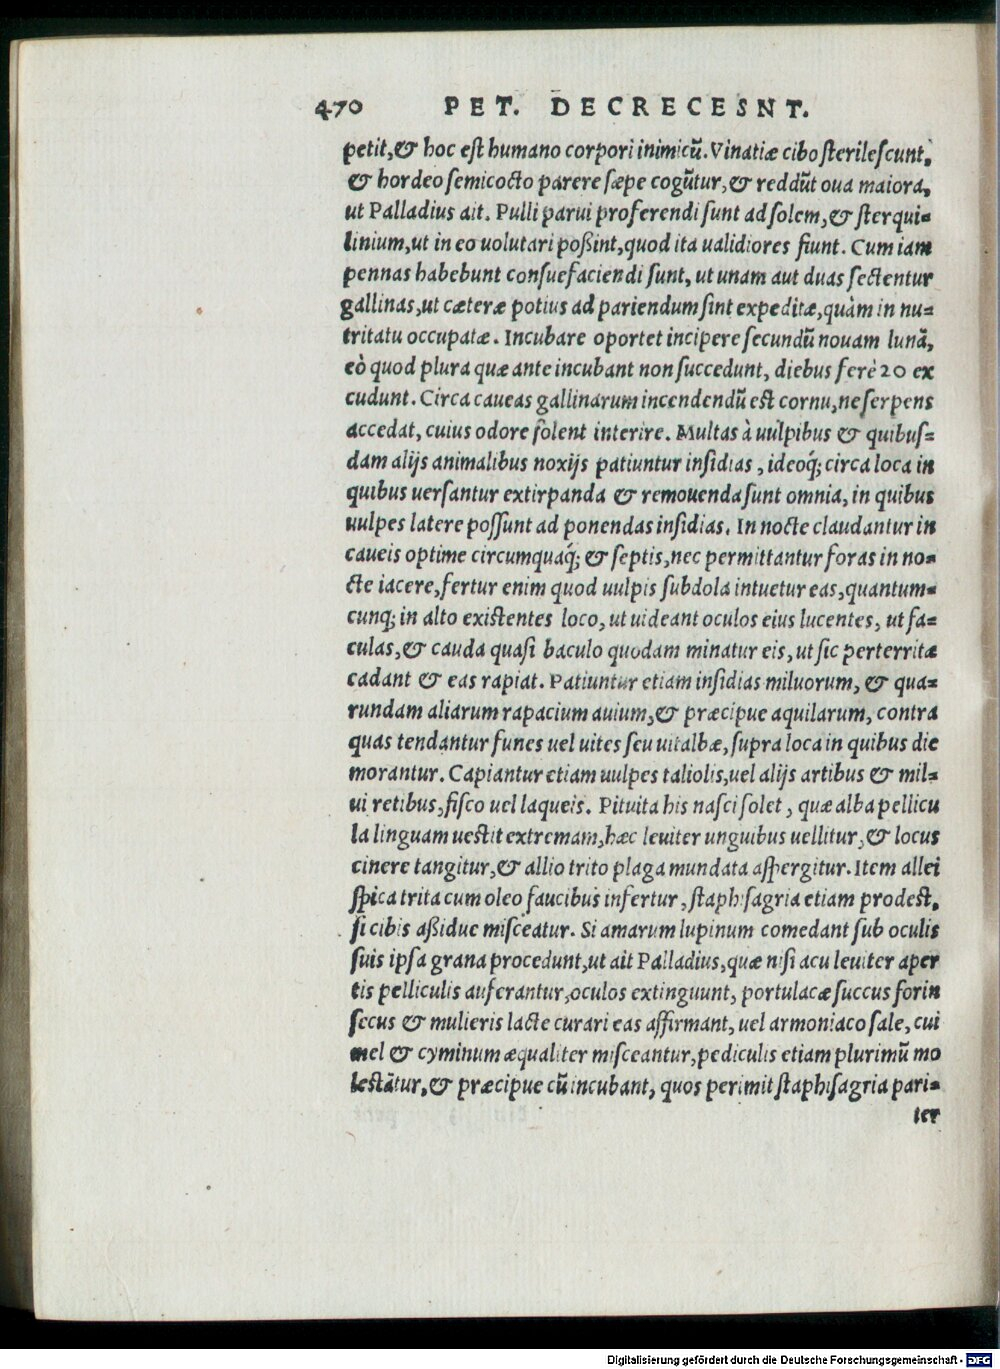 470 PET. DECRECESNT.
petit, & hoc est humano corpori inimicū. Vinatiæ cibo sterilescunt,
& hordeo semicocto parere sæpe cogūtur, & reddūt oua maiora,
ut Palladius ait. Pulli parui proferendi sunt ad solem, & sterqui=
linium, ut in eo uolutari poßint, quod ita ualidiores fiunt. Cum iam
pennas habebunt consuefaciendi sunt, ut unam aut duas sectentur
gallinas, ut cæteræ potius ad pariendum sint expeditæ, quàm in nu=
tritatu occupatæ. Incubare oportet incipere secundū nouam lunā,
eò quod plura quæ ante incubant non succedunt, diebus ferè 20 ex
cudunt. Circa caueas gallinarum incendendū est cornu, ne serpens
accedat, cuius odore solent interire. Multas à uulpibus & quibus=
dam alijs animalibus noxijs patiuntur insidias, ideoq́; circa loca in
quibus uersantur extirpanda & remouenda sunt omnia, in quibus
uulpes latere possunt ad ponendas insidias. In nocte claudantur in
caueis optime circumquaq́; & septis, nec permittantur foras in no=
cte iacere, fertur enim quod uulpis subdola intuetur eas, quantum=
cunq; in alto existentes loco, ut uideant oculos eius lucentes, ut fa=
culas, & cauda quasi baculo quodam minatur eis, ut sic perterritæ
cadant & eas rapiat. Patiuntur etiam insidias miluorum, & qua=
rundam aliarum rapacium auium, & præcipue aquilarum, contra
quas tendantur funes uel uites seu uitalbæ, supra loca in quibus die
morantur. Capiantur etiam uulpes taliolis, uel alijs artibus & mil=
ui retibus, fisco uel laqueis. Pituita his nasci solet, quæ alba pellicu
la linguam uestit extremam, hæc leuiter unguibus uellitur, & locus
cinere tangitur, & allio trito plaga mundata aspergitur. Item allei
spica trita cum oleo faucibus infertur, staphisagria etiam prodest,
si cibis aßidue misceatur. Si amarum lupinum comedant sub oculis
suis ipsa grana procedunt, ut ait Palladius, quæ nisi acu leuiter aper
tis pelliculis auferantur, oculos extinguunt, portulacæ succus forin
secus & mulieris lacte curari eas affirmant, uel armoniaco sale, cui
mel & cyminum æqualiter misceantur, pediculis etiam plurimū mo
lestātur, & præcipue cū incubant, quos perimit staphisagria pari=
ter
Digitalisierung gefördert durch die Deutsche Forschungsgemeinschaft - DFG